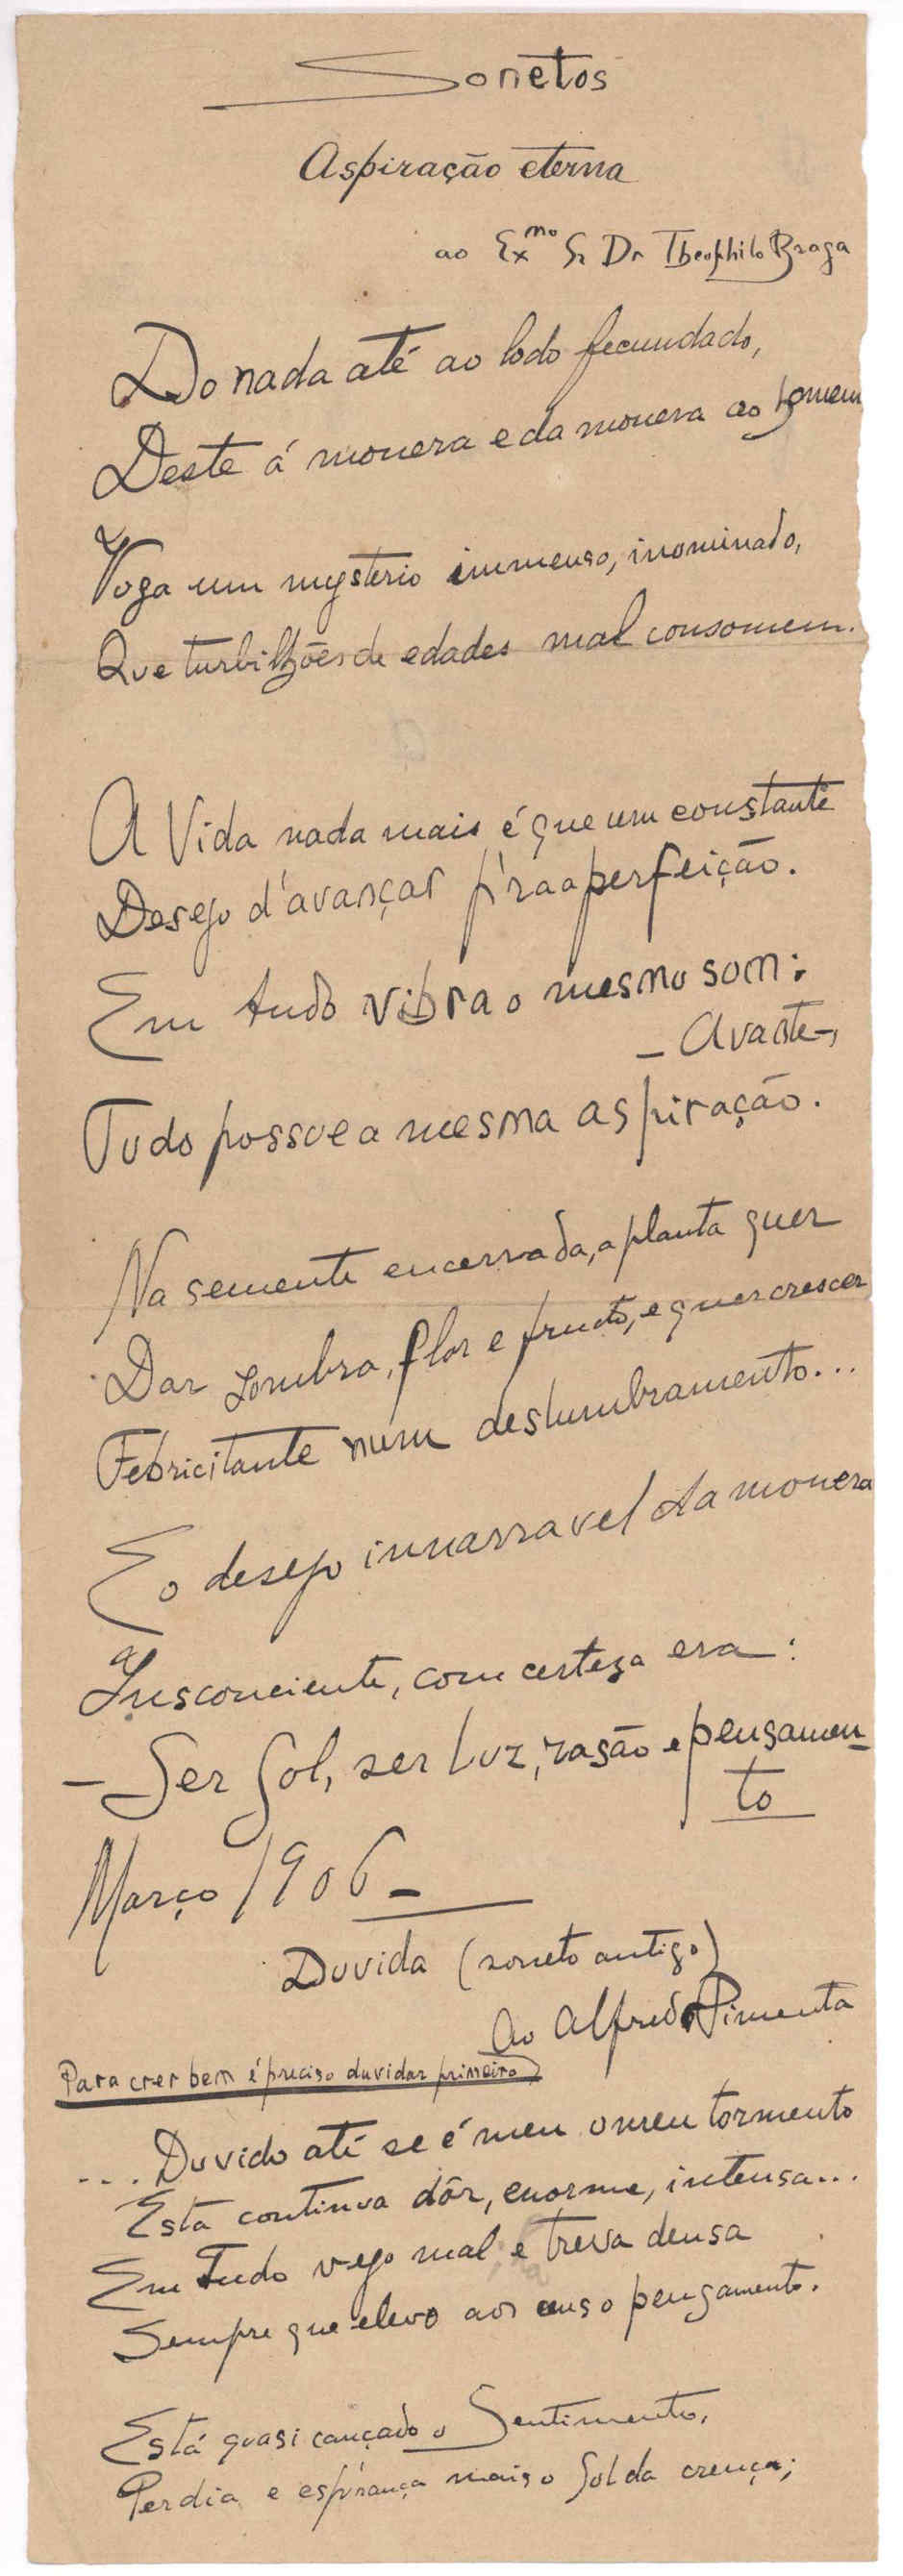 Sonetos
Aspiração eterna
ao Exmo Sr Dr Theophilo Braga
Do nada até ao lodo fecundado,
Deste á monera e da monera ao homem
Voga um mysterio immenso, inominado,
Que turbilhões de edades mal consomem.
A Vida nada mais é que um constante
Desejo d'avançar p'ra a perfeição.
Em tudo vibra o mesmo som:
– Avante –,
Tudo possue a mesma aspiração.
Na semente encerrada, a planta quer
Dar sombra, flor e fructo, e quer crescer
Febricitante num deslumbramento...
E o desejo innarravel da monera
Insconciente, com certeza era:
– Ser Sol, ser Luz, rasão e pensamen-
to
Março 1906 –
Duvida (soneto antigo)
Ao Alfredo Pimenta
Para crer bem é preciso duvidar primeiro
... Duvido até se é meu o meu tormento
Esta continua dôr, enorme, intensa...
Em tudo vejo mal e treva densa
Sempre que elevo aos ceus o pensamento.
Está quasi cançado o Sentimento,
Perdia e esp'rança mais o Sol da crença;